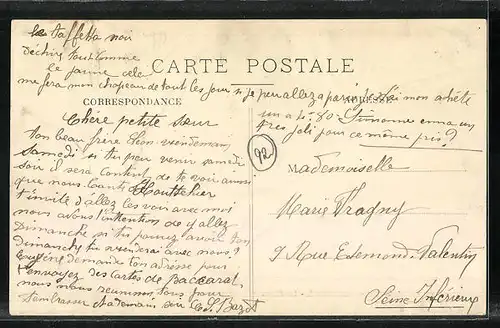 le taffetta noir
déchire tout comme
le jaune cela
me fera mon chapeau de tout les jours si je peu allez a paris
un a 4.80 Simonne en a un
tres joli pour ce même prix?
CARTE POSTALE
CORRESPONDANCE
ADRESSE
Chere petite sœur
ton beau frère Leon viendra
samedi si tu peu venir samedi
soir il sera content de te voir aussi
que nous
t'invite d'allez les voir avec moi
nous avons l'intention de d'allez
Dimanche si tu pouvez avoir ton
dimanche tu viendrai avec nous
demande ton adresse pour
t'envoyez des cartes de Baccarat
nous nous reunisson tous pour
t'embrasser A demain soir
92
Mademoiselle
Marie Fragny
9 Rue Edmond-Valentin
Seine Inférieure